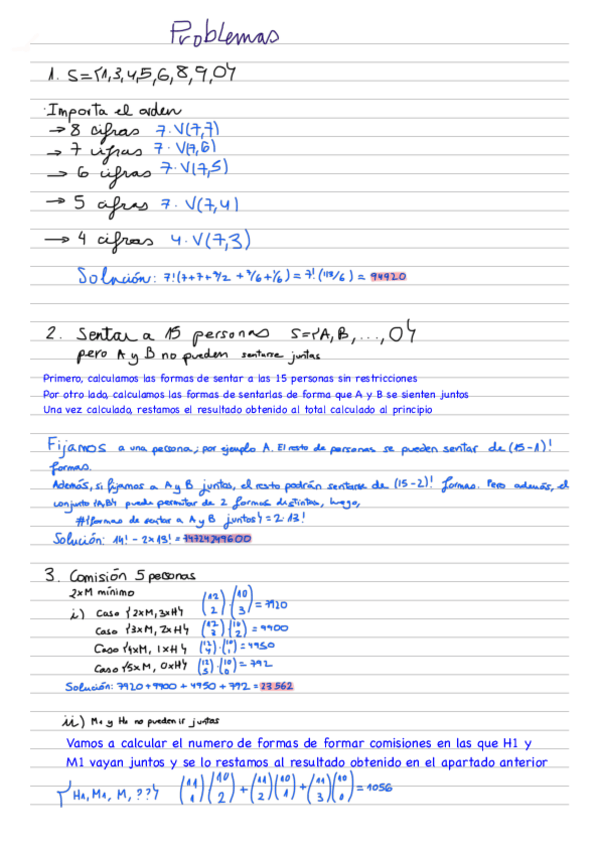 Problemas
1. S={1,3,4,5,6,8,9,0}
·Importa el orden
→ 8 cifras 7·V(7,7)
→ 7 cifras 7·V(7,6)
→ 6 cifras 7·V(7,5)
→ 5 cifras 7·V(7,4)
→ 4 cifras 4·V(7,3)
Solución: 7!(7+7+7/2+7/6+1/6) = 7!(113/6) = 94920
2. Sentar a 15 personas S={A,B,...,O}
pero A y B no pueden sentarse juntas
Primero, calculamos las formas de sentar a las 15 personas sin restricciones
Por otro lado, calculamos las formas de sentarlas de forma que A y B se sienten juntos
Una vez calculado, restamos el resultado obtenido al total calculado al principio
Fijamos a una persona; por ejemplo A. El resto de personas se pueden sentar de (15-1)!
formas.
Además, si fijamos a A y B juntas, el resto podrán sentarse de (15-2)! formas. Pero además, el
conjunto {A,B} puede permutar de 2 formas distintas, luego,
#{formas de sentar a A y B juntos} = 2·13!
Solución: 14! - 2×13! = 74724249600
3. Comisión 5 personas
2×M mínimo
i) Caso {2×M, 3×H} (12 2)·(10 3) = 7920
Caso {3×M, 2×H} (12 3)·(10 2) = 9900
Caso {4×M, 1×H} (12 4)·(10 1) = 4950
Caso {5×M, 0×H} (12 5)·(10 0) = 792
Solución: 7920 + 9900 + 4950 + 792 = 23.562
ii) M1 y H1 no pueden ir juntas
Vamos a calcular el numero de formas de formar comisiones en las que H1 y
M1 vayan juntos y se lo restamos al resultado obtenido en el apartado anterior
{H1, M1, M, ??} (11 1)(10 2) + (11 2)(10 1) + (11 3)(10 0) = 1056